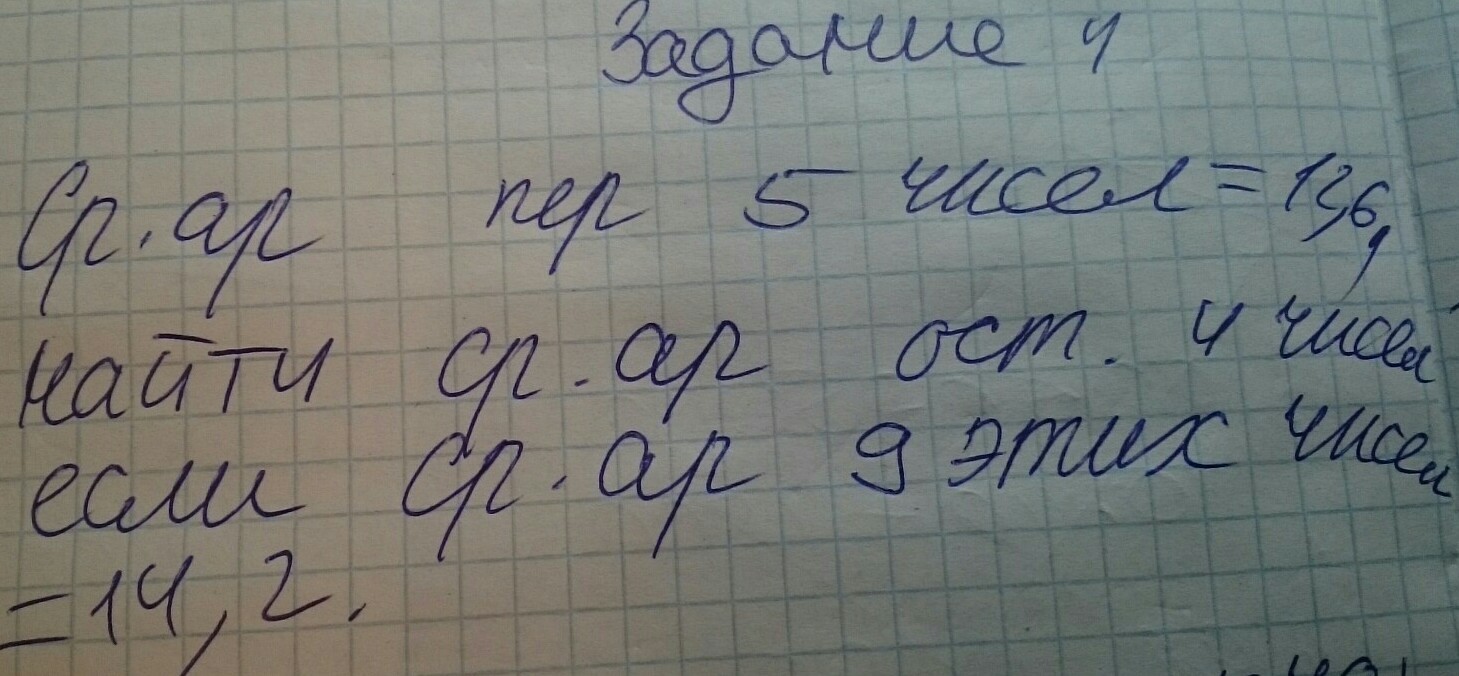 Задание 4
Ср. ар пер 5 чисел = 13,6,
найти ср. ар ост. 4 чисел
если ср. ар 9 этих чисел
= 14,2.